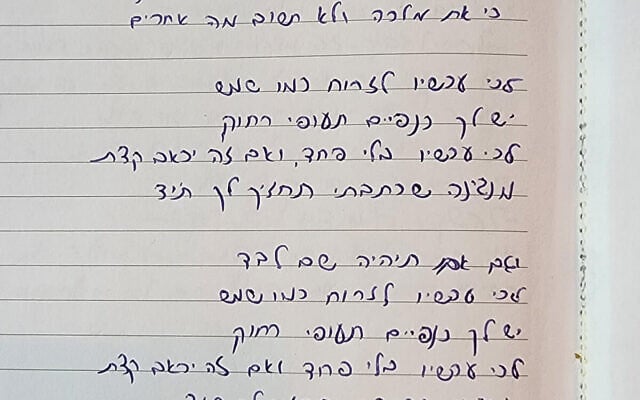 כי את מלכה ולא חשוב מה אחרים
לכי עכשיו לזרוח כמו שמש
יש לך כנפיים תעופי רחוק
לכי עכשיו בלי פחד, ואם זה יכאב קצת
מנגינה שכתבתי תחזיק לך ת'יד
ואם תיהיה שם לבד
לכי עכשיו לזרוח כמו שמש
יש לך כנפיים תעופי רחוק
לכי עכשיו בלי פחד ואם זה יכאב קצת